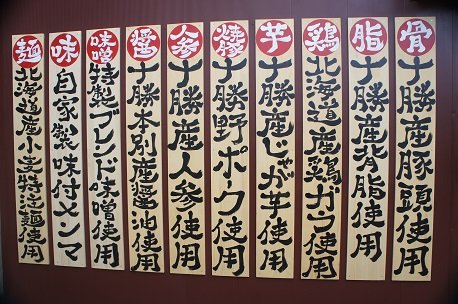 骨 十勝産豚頭使用
脂 十勝産背脂使用
鶏 北海道産鶏ガラ使用
芋 十勝産じゃが芋使用
焼豚 十勝野ポーク使用
人参 十勝産人参使用
醤 十勝本別産醤油使用
味噌 特製ブレンド味噌使用
味 自家製味付メンマ
麺 北海道産小麦特注麺使用